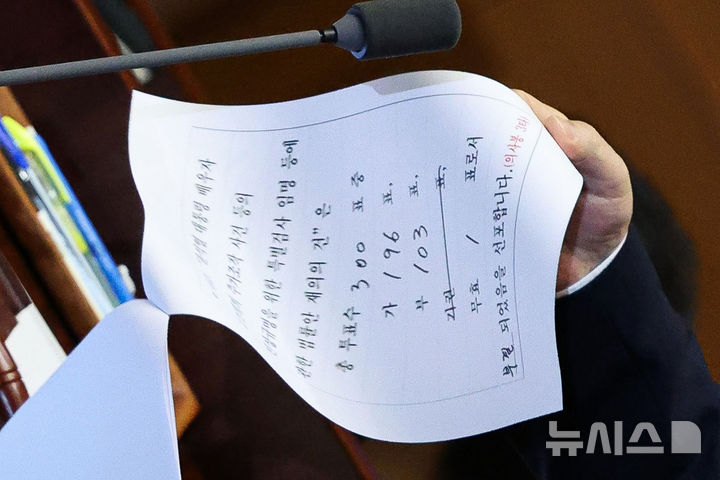 대통령 배우자
주가조작 사건 등의
진상규명을 위한 특별검사 임명 등에
관한 법률안 재의의 건" 은
총 투표수 300 표 중
가 196 표,
부 103 표,
기권 표,
무효 1 표로서
부결 되었음을 선포합니다.(의사봉 3타)
뉴시스